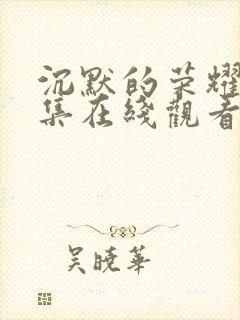 沉默的荣耀
集在綫觀看
吴曉華